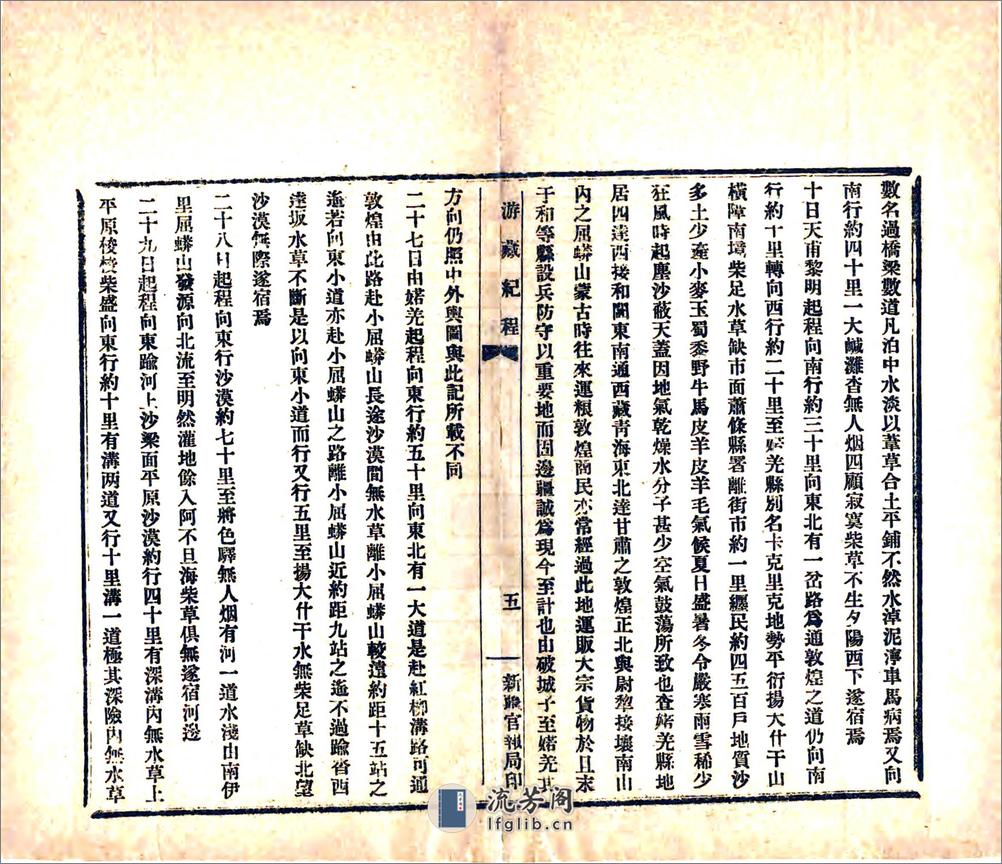 數名過橋梁數道凡泊中水淡以葦草合土平鋪不然水淖泥濘車馬病焉又向
南行約四十里一大鹹灘杳無人烟四顧寂寞柴草不生夕陽西下遂宿焉
十日天甫黎明起程向南行約三十里向東北有一岔路爲通敦煌之道仍向南
行約十里轉向西行約二十里至婼羌縣別名卡克里克地勢平衍揚大什干山
橫障南壩柴足水草缺市面蕭條縣署離街市約一里纏民約四五百戶地質沙
多土少產小麥玉蜀黍野牛馬皮羊皮羊毛氣候夏日盛暑冬令嚴寒雨雪稀少
狂風時起塵沙蔽天蓋因地氣乾燥水分子甚少空氣鼓蕩所致也查婼羌縣地
居四達西接和闐東南通西藏靑海東北達甘肅之敦煌正北與尉犁接壤南山
內之屈蟒山蒙古時往來運粮敦煌商民亦常經過此地運販大宗貨物於且末
于和等縣設兵防守以重要地而固邊疆誠爲現今至計也由破城子至婼羌其
游藏紀程
五
新疆官報局印
方向仍照中外輿圖與此記所載不同
二十七日由婼羌起程向東行約五十里向東北有一大道是赴紅柳溝路可通
敦煌由此路赴小屈蟒山長途沙漠間無水草離小屈蟒山較遠約距十五站之
遙若向東小道亦赴小屈蟒山之路離小屈蟒山近約距九站之遙不過踰酋西
達坂水草不斷是以向東小道而行又行五里至揚大什干水無柴足草缺北望
沙漠無際遂宿焉
二十八日起程向東行沙漠約七十里至將色驛無人烟有河一道水淺山南伊
里屈蟒山發源向北流至明然灌地餘入阿不旦海柴草俱無遂宿河邊
二十九日起程向東踰河上沙梁面平原沙漠約行四十里有深溝內無水草上
平原梭梭柴盛向東行約十里有溝两道又行十里溝一道極其深險內無水草
流芳閣
lfglib.cn